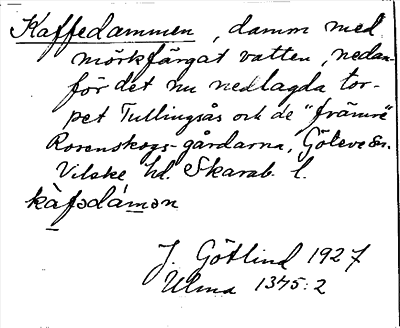 Kaffedammen, damm med
mörkfärgat vatten, nedan-
för det nu nedlagda tor-
pet Tullingsås och de "främre"
Rorenskogs-gårdarna, Göteve sn.
Vilske hd. Skarab. l.
kàfədámən
J. Götlind 1927
Ulma 1345:2